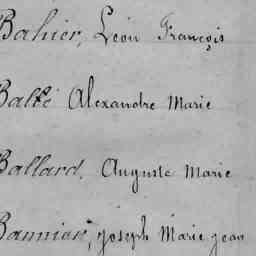 Bahier, Léon François
Ballé Alexandre Marie
Ballard, Auguste Marie
Bannier, Joseph Marie Jean